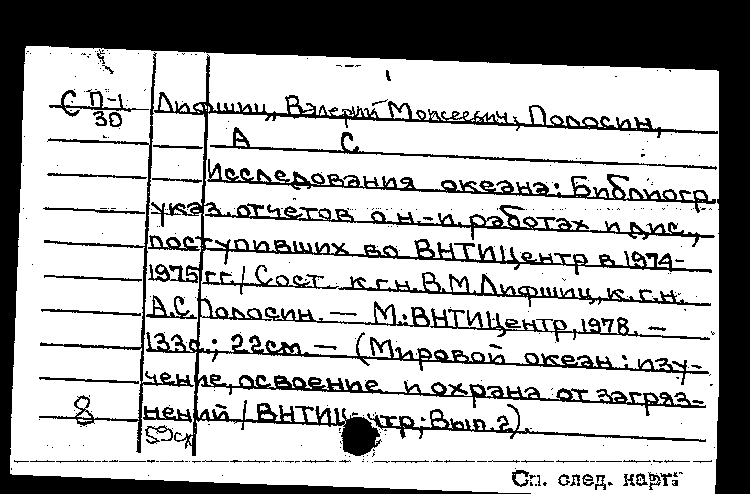 С П-1 Лифшиц, Валерий Моисеевич; Полосин,
30
А С
Исследования океана: Библиогр.
указ. отчетов о н.-и. работах и дис.,
поступивших во ВНТИЦентр в 1974-
1975 гг. / Сост. к.г.н. В.М. Лифшиц, к.г.н.
А.С. Полосин. — М.: ВНТИЦентр, 1978. —
133с.; 22см. — (Мировой океан: изу-
чение, освоение и охрана от загряз-
8 нений / ВНТИЦентр; Вып. 2).
См. след. карт: